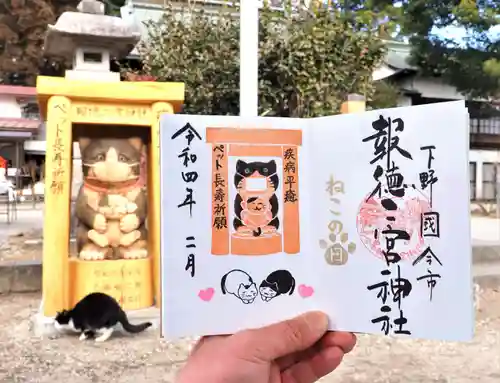 下野國今市
報徳二宮神社
ねこの日
疾病平癒
ペット長寿祈願
令和四年 二月
ペット長寿祈願